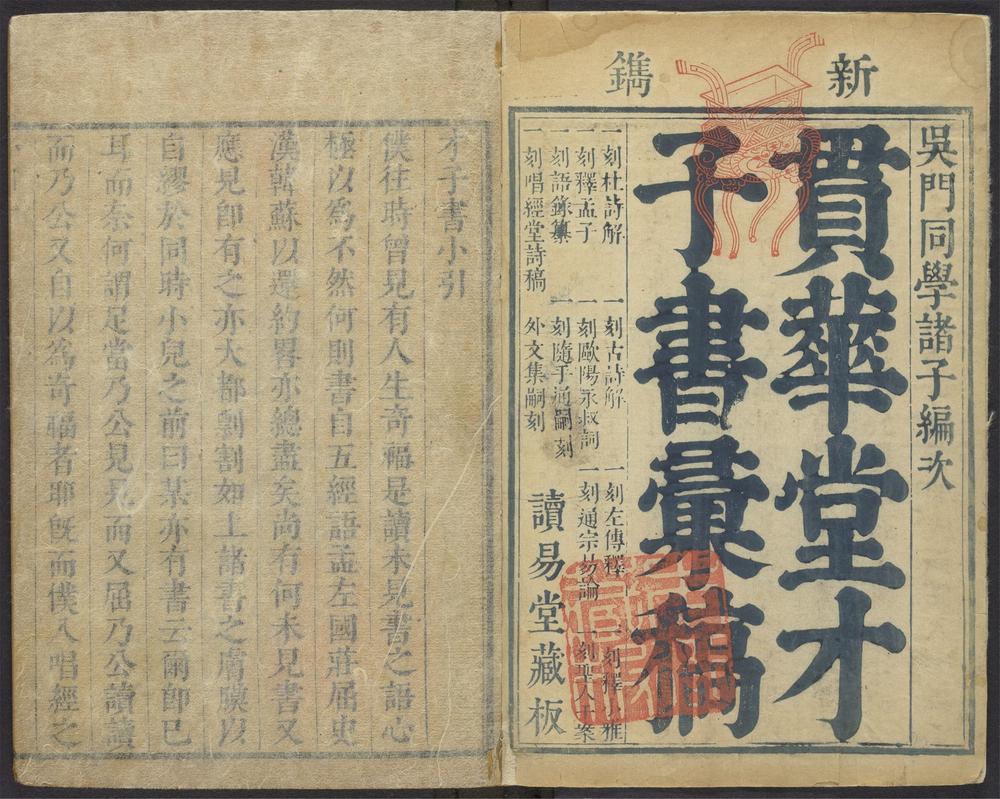 新鐫
吳門同學諸子編次
貫華堂才
子書彙稿
一刻杜詩解 一刻古詩解 一刻左傳釋 一刻釋小雅
一刻釋孟子 一刻歐陽永叔詞 一刻通宗易論 一刻聖人千案
一刻語錄纂 一刻隨手通嗣刻
一刻唱經堂詩稿 外文集嗣刻
讀易堂藏板
才子書小引
僕往時曾見有人生奇福是讀未見書之語心
極以為不然何則書自五經語孟左國莊屈史
漢韓蘇以還約畧亦總盡矣尚有何未見書又
應見卽有之亦大都剽割如上諸書之膚膜以
自繆於同時小兒之前曰某亦有書云爾卽已
耳而奈何謂足當乃公見見而又屈乃公讀讀
而乃公又自以為奇福者耶旣而僕入唱經之